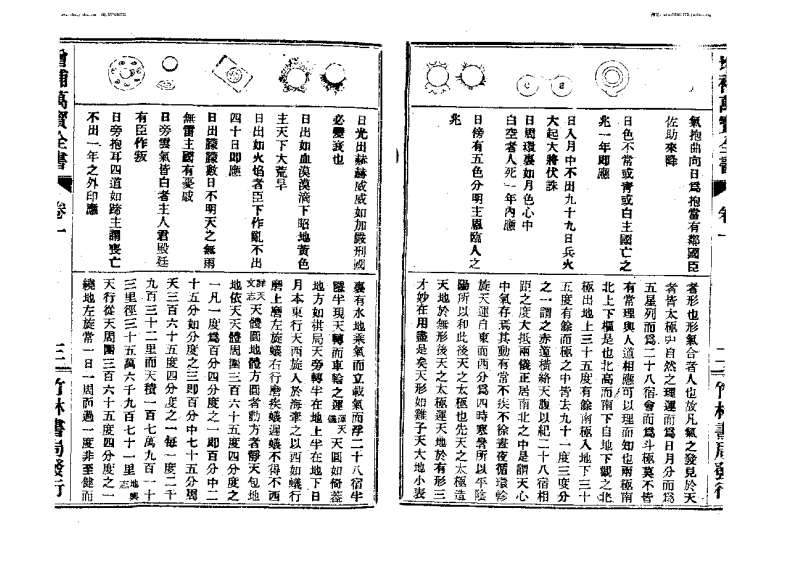 增補萬寶全書
卷一
二
竹林書局發行
氣抱曲向日爲抱當有鄰國臣
佐助來降
日色不常或青或白主國亡之
兆一年即應
日入月中不出九十九日兵火
大起大將伏誅
日周環裏如月色心中
白空者人死一年內應
日傍有五色分明主恩臨人之
兆
者形也形氣合者人也故凡氣之發見於天
者皆太極中自然之理運而爲日月分而爲
五星列而爲二十八宿會而爲斗極莫不皆
有常理與人道相應可以理而知也兩極南
北上下樞是也北高而南下自地下觀之北
極出地上三十五度有餘南極入地下三十
五度有餘而極之中皆去九十一度三度分
之一謂之赤道橫絡天腹以紀二十八宿相
距之度大抵兩儀正居南北之中是謂天心
中氣存焉其動有常不疾不徐晝夜循環斡
旋天運自東而西分爲四時寒暑所以平陰
陽所以和此後天之太極也先天之太極造
天地於無形後天之太極運天地於有形三
才妙在用盡是矣天形如雞子天大地小表
增補萬寶全書
卷一
三
竹林書局發行
日光出赫赫威威如加嚴刑國
必變衰也
日出如血漠漠滴下昭地黃色
主天下大荒旱
日出如火焰者臣下作亂不出
四十日即應
日出朦朦數日不明天之無雨
無雷主國有憂戚
日旁雲氣皆白者主人君毀廷
有臣作叛
日旁抱耳四道如蹄主謂喪亡
不出一年之外印應
裏有水地乘氣而立載氣而浮二十八宿半
隱半現天轉而車輪之運渾天儀天圓如倚蓋
地方如棋局天旁轉半在地上半在地下日
月本東行天西旋入於海牽之以西如蟻行
磨上磨左旋蟻右行磨疾蟻遲蟻不得不西
詳天文志天體圓地體方圓者動方者靜天包地
地依天天體周圍三百六十五度四分度之
一凡一度爲百分四分度之一即百分中二
十五分如分度之三即百分中七十五分周
天三百六十五度四分度之一每一度二千
九百三十二里而天積一百七萬九百一十
三里徑三十五萬六千九百七十一里地輿志
天行從天周圍三百六十五度四分度之一
繞地左旋常一日一周而過一度非至健而